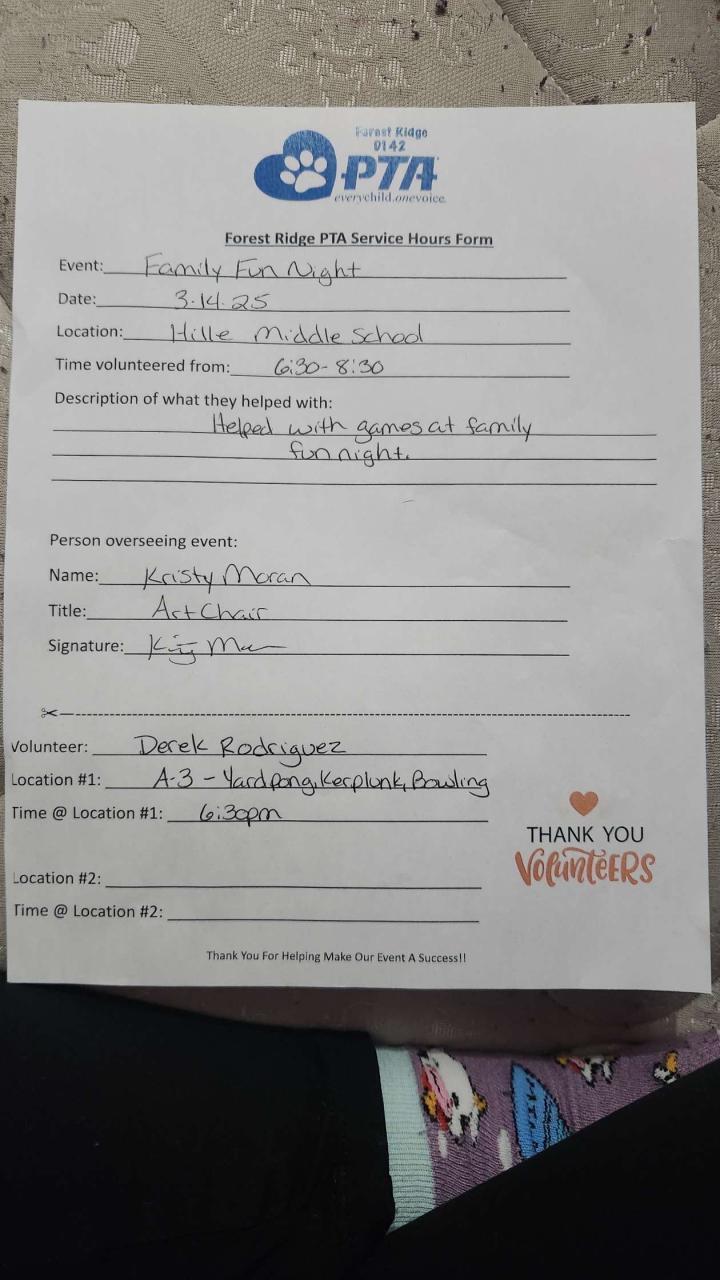 Forest Ridge
0142
PTA
everychild.onevoice.
Forest Ridge PTA Service Hours Form
Event: Family Fun Night
Date: 3.14.25
Location: Hille Middle School
Time volunteered from: 6:30-8:30
Description of what they helped with:
Helped with games at family
fun night.
Person overseeing event:
Name: Kristy Moran
Title: Art Chair
Signature:
Volunteer: Derek Rodriguez
Location #1: A-3 - Yardpong, Kerplunk, Bowling
Time @ Location #1: 6:30pm
THANK YOU
VOLUNTEERS
Location #2:
Time @ Location #2:
Thank You For Helping Make Our Event A Success!!